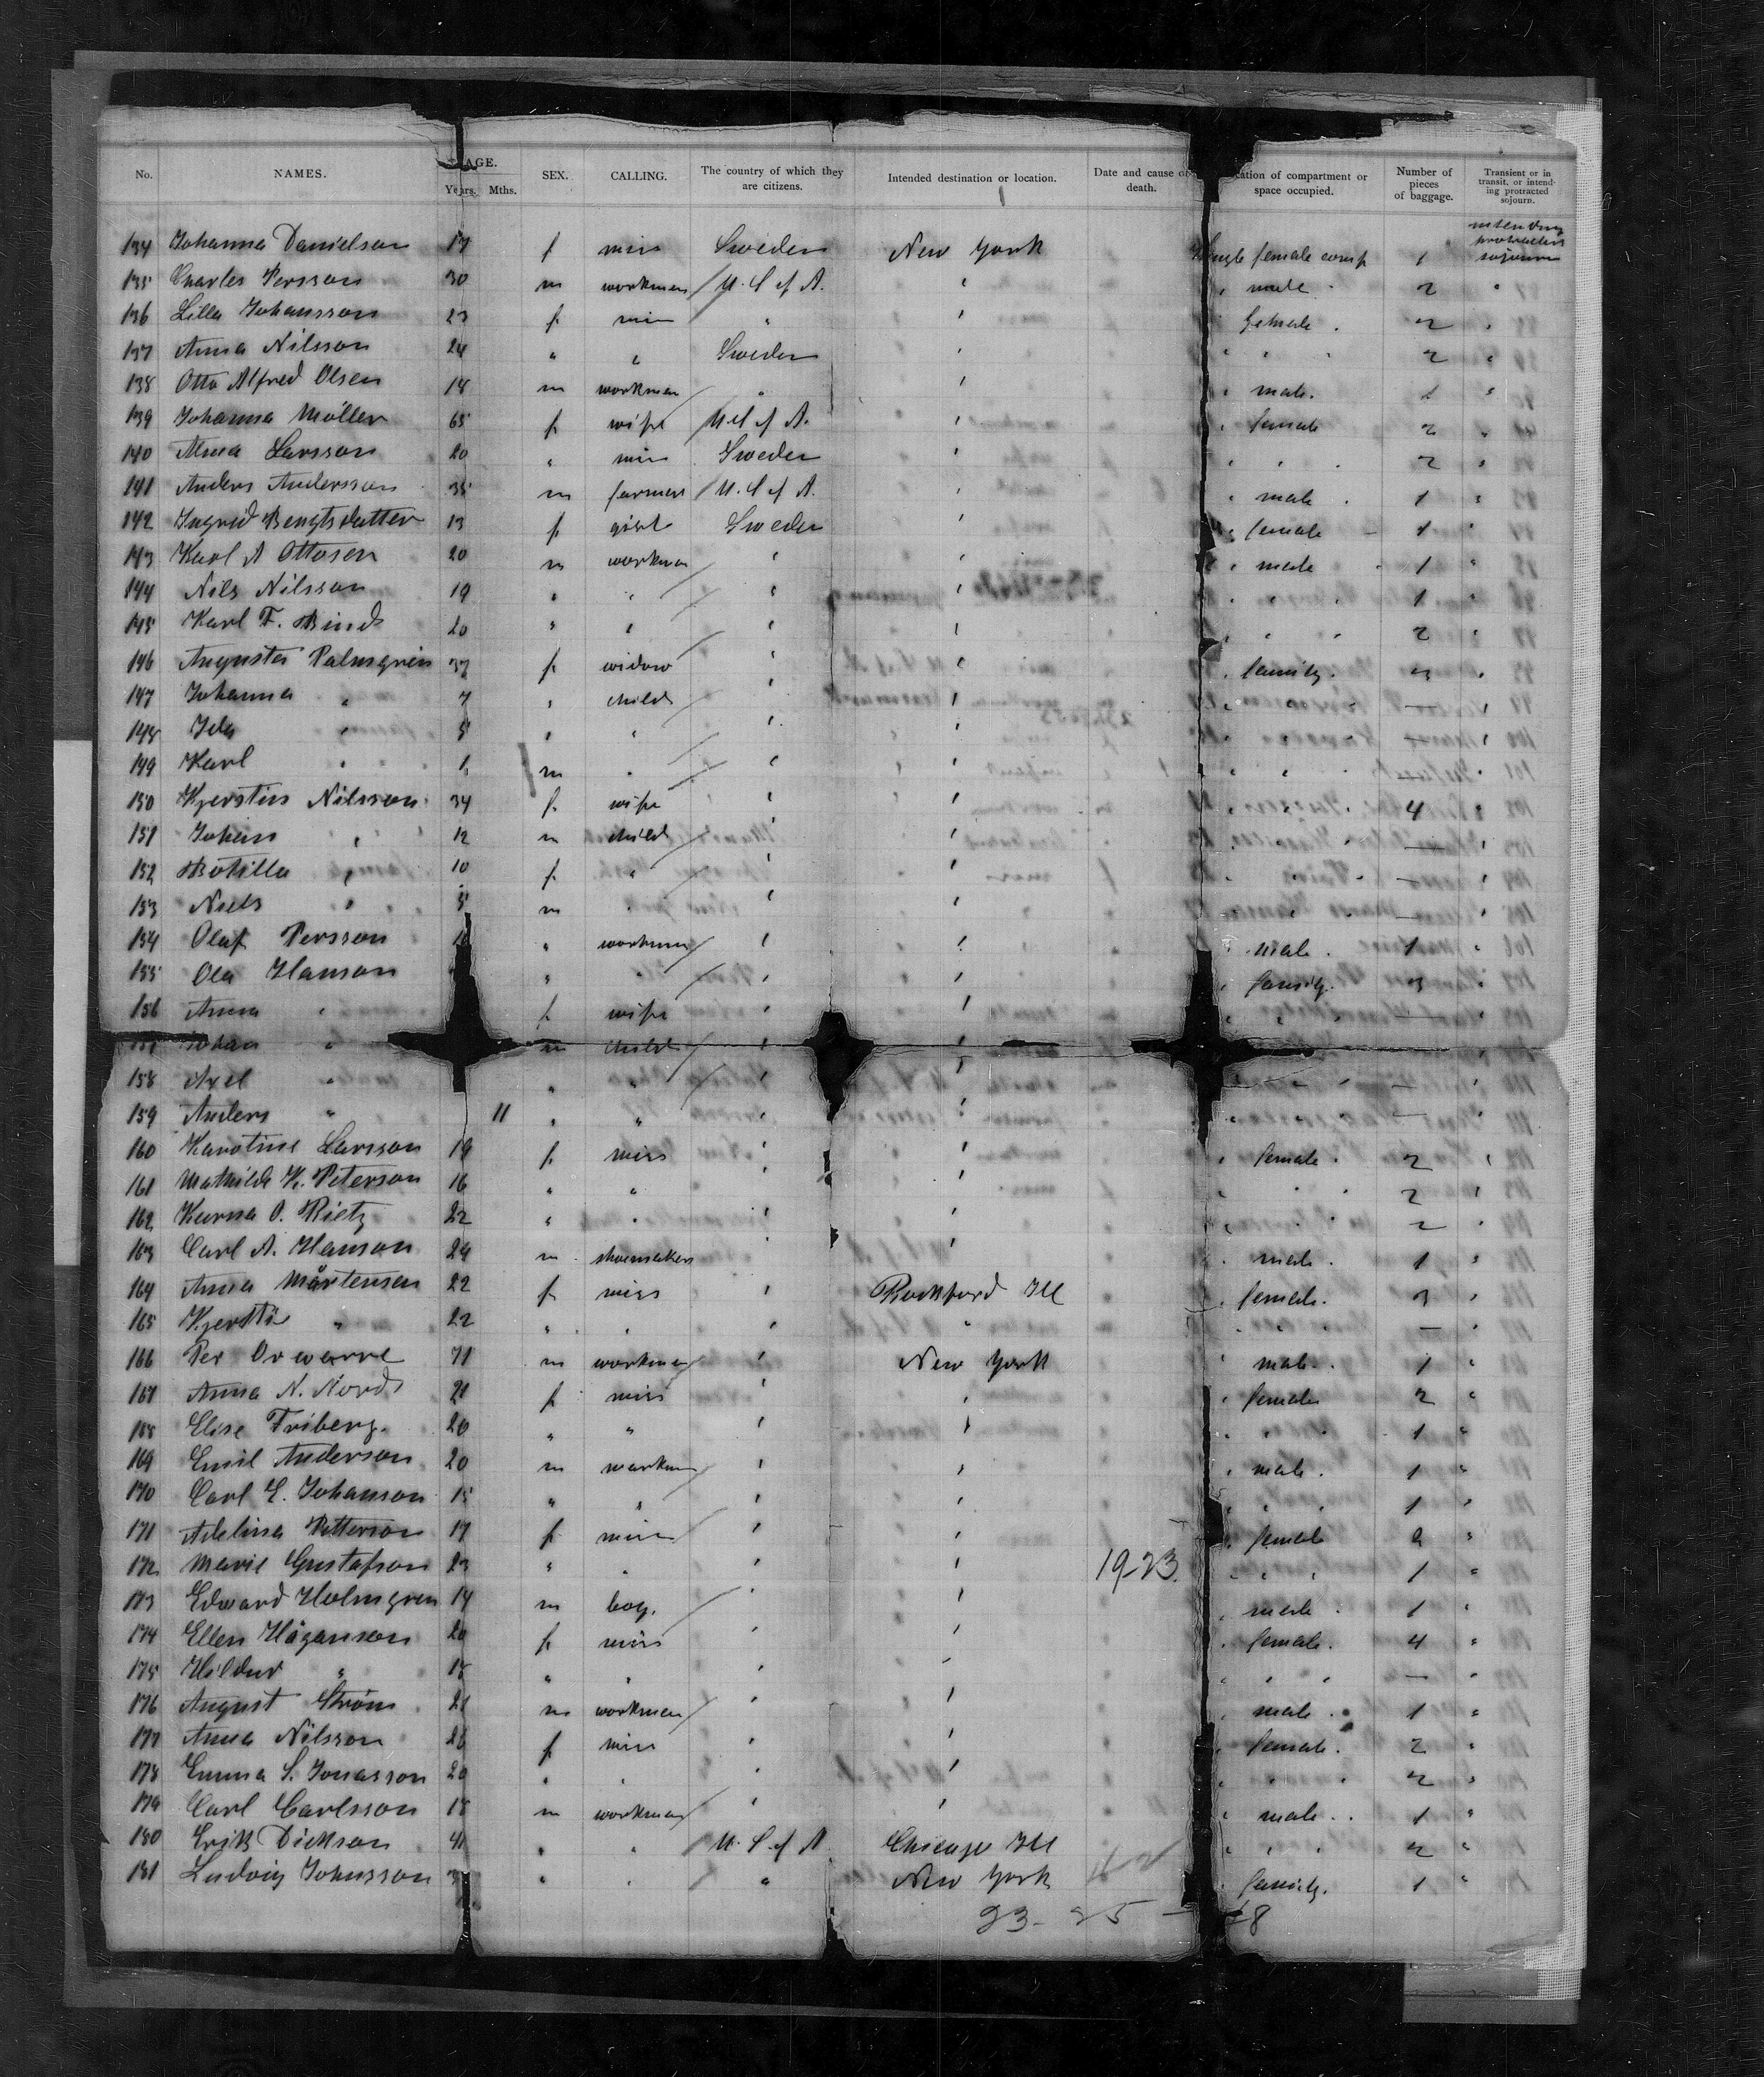 No. NAMES. AGE. Years. Mths. SEX. CALLING. The country of which they are citizens. Intended destination or location. Date and cause of death. cation of compartment or space occupied. Number of pieces of baggage. Transient or in transit, or intending protracted sojourn.
134 Johanna Danielson 17 f miss Sweden New York Single female comp 1 intending protracted sojourn
135 Charles Persson 30 m workman U. S of A. " " male " 2 "
136 Lilla Johansson 23 f miss " " " female " 2 "
137 Anna Nilsson 24 " " Sweden " " " " 2 "
138 Otto Alfred Olsen 18 m workman " " " male. 1 "
139 Johanna Möller 65 f wife U S of A. " " female 2 "
140 Alma Larsson 20 " miss Sweden " " " " 2 "
141 Anders Andersson 35 m farmer U. S of A. " " male " 1 "
142 Ingrid Bengtsdatter 13 f girl Sweden " " female 1 "
143 Karl A Ottosen 20 m workman " " " male " 1 "
144 Nils Nilsson 19 " " " " " " " 1 "
145 Karl F. Bind 20 " " " " " " " 2 "
146 Augusta Palmgren 37 f widow " " " family. 3 "
147 Johanna " 7 " child " " " " " — "
148 Ida " 5 " " " " " " " — "
149 Karl " 1 m " " " " " " — "
150 Kjerstin Nilsson 34 f wife " " " " " 4 "
151 Johan " 12 m child " " " " " — "
152 Botilla " 10 f " " " " " " — "
153 Niels " 5 m " " " " " " — "
154 Olaf Persson " workman " " " male. 1 "
155 Ola Hanson " " " " " family. 3 "
156 Anna " f wife " " " " " — "
157 Johan " m child " "
158 Axel " " " " " " " " — "
159 Anders " 11 " " " " " " " — "
160 Karoline Larsson 19 f miss " " " female " 2 "
161 Mathilde K. Peterson 16 " " " " " " " 2 "
162 Karna O. Rietz 22 " " " " " " " 2 "
163 Carl A. Hanson 24 m shoemaker " " " male " 1 "
164 Anna Mårtensen 22 f miss " Rockford Ill " female. 3 "
165 Kjersti " 22 " " " " " " " — "
166 Per Orwarre 71 m workman " New York " male " 1 "
167 Anna N. Nord 21 f miss " " " female 2 "
168 Elise Friberg. 20 " " " " " " " 1 "
169 Emil Anderson 20 m workman " " " male. 1 "
170 Carl E. Johanson 15 " " " " " " " 1 "
171 Adelina Petterson 17 f miss " " " female 2 "
172 Marie Gustafson 23 " " " " 19-23. " " " 1 "
173 Edward Holmgren 14 m boy. " " " male " 1 "
174 Ellen Håganson 20 f miss " " " female. 4 "
175 Hildur " 18 " " " " " " " — "
176 August Ström 21 m workman " " " male " 1 "
177 Anna Nilsson 28 f miss " " " female. 2 "
178 Emma S. Jonasson 20 " " " " " " " 2 "
179 Carl Carlsson 18 m workman " " " male " 1 "
180 Erik Dickson 41 " " U. S of A Chicago Ill " " " 2 "
181 Ludvig Johnsson 3 " " " New York " family. 1 "
23 - 25 - 48